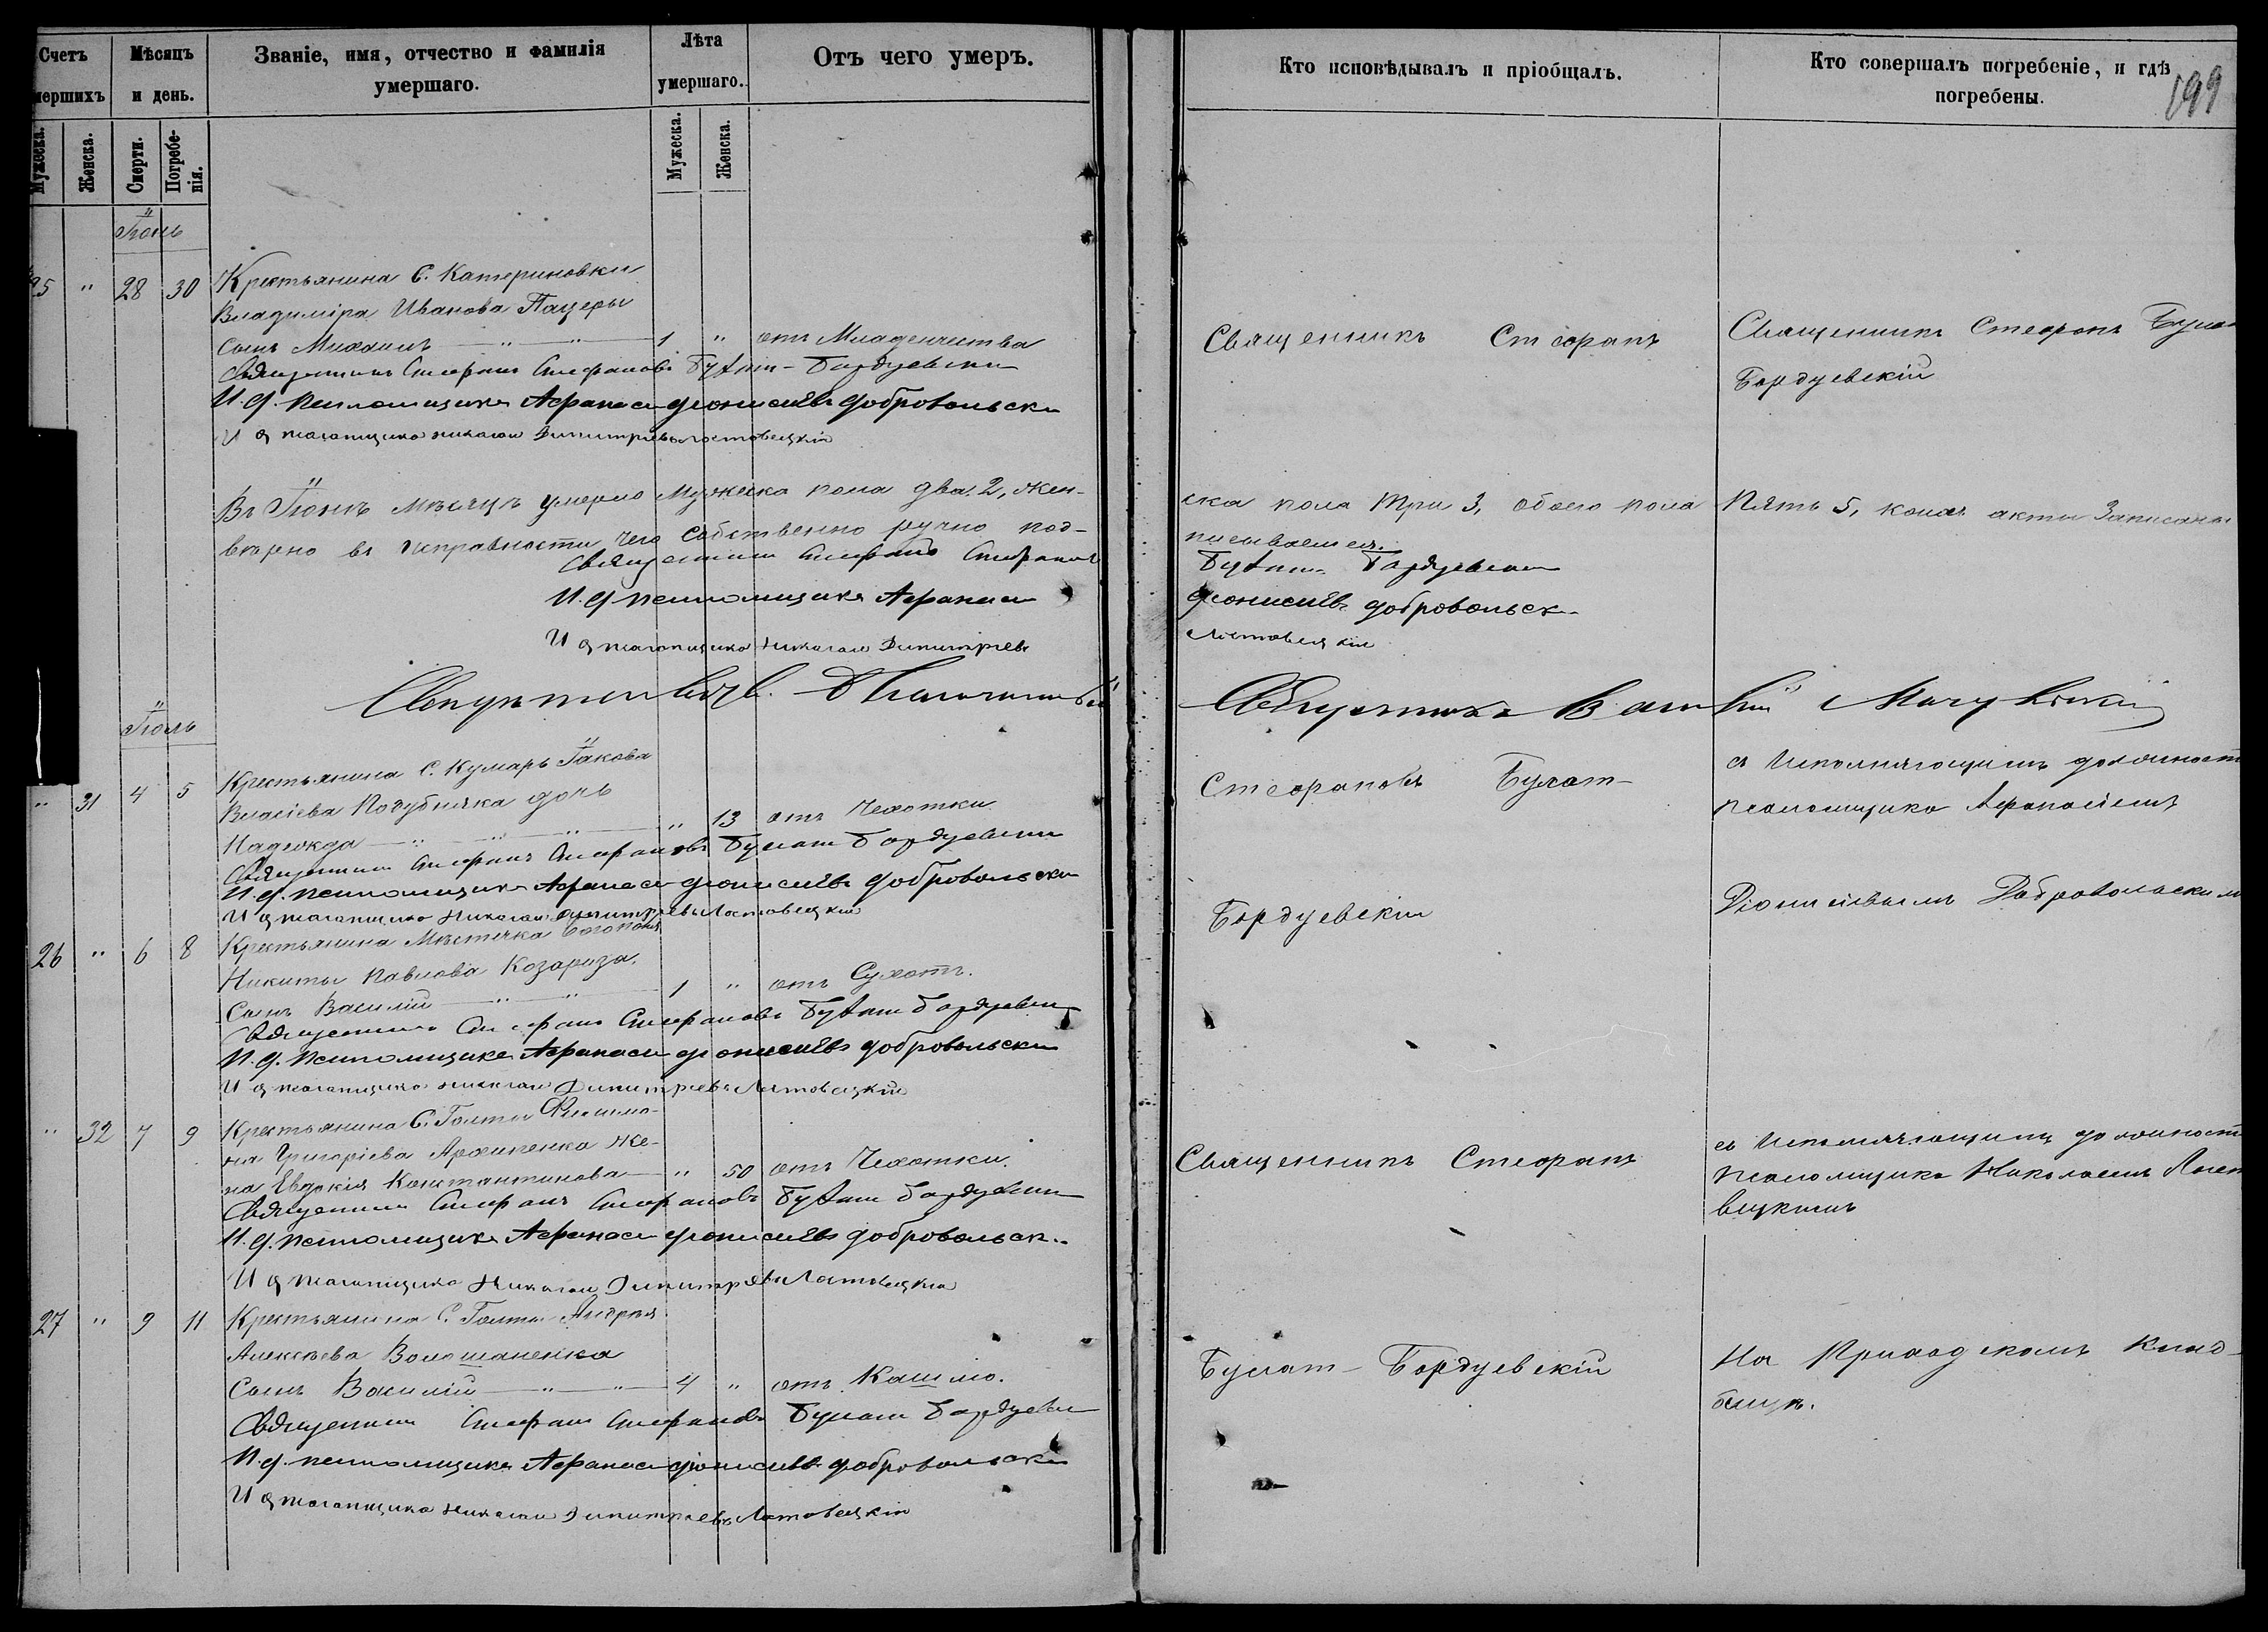 Счетъ
мершихъ
Мѣсяцъ
и день.
Званіе, имя, отчество и фамилія
умершаго.
Лѣта
умершаго.
Отъ чего умеръ.
Кто исповѣдывалъ и пріобщалъ.
Кто совершалъ погребеніе, и гдѣ
погребены.
199
Мужеска.
Женска.
Смерти.
Погребе-
нія.
Мужеска.
Женска.
Іюнь
25 " 28 30 Крестьянина С. Катериновки
Владиміра Ивановa Пацеры
сынъ Михаилъ 1 " отъ Младенчества
Священникъ Стефанъ Стефановъ Булат-Бордуевскій
И. д. псаломщика Афанасій Діонисіевъ Добровольскій
И д псаломщика Николай Димитріевъ Лотовецкій
Священникъ Стефанъ
Священникъ Стефанъ Булат
Бордуевскій
Въ Іюнѣ мѣсяцѣ умерло Мужеска пола два 2, жен-
ска пола три 3, обоего пола Пять 5, коихъ акты Записаны
вѣрно въ исправности чего собственно ручно под-
писываемся.
Священникъ Стефанъ Стефановъ
Булат Бордуевскій
И. д псаломщика Афанасій
Діонисіевъ Добровольск
И д псаломщика Николай Димитріевъ
Лотовецкій
Іюль
" 31 4 5 Крестьянина С. Кумаръ Іакова
Власіева Поддубняка дочь
Надежда " 13 отъ Чехотки
Священникъ Стефанъ Стефановъ Булат Бордуевскій
И. д. псаломщика Афанасій Діонисіевъ Добровольскій
И д псаломщика Николай Димитріевъ Лотовецкій
Стефановъ Булат-
Бордуевскій
съ Исполняющимъ должност
псаломщика Афанасіемъ
Діонисіевымъ Добровольским
26 " 6 8 Крестьянина Мѣстечка Богополя
Никиты Павлова Козариза
Сынъ Василій 1 " отъ Сухотъ.
Священникъ Стефанъ Стефановъ Булат Бордуевскій
И. д. псаломщика Афанасій Діонисіевъ Добровольскій
И д псаломщика Николай Димитріевъ Лотовецкій
" 32 7 9 Крестьянина С. Голты Филимо-
на Григоріева Архипенка же-
на Евдокія Константинова " 50 отъ Чехотки.
Священникъ Стефанъ Стефановъ Булат Бордуевскій
И. д. псаломщика Афанасій Діонисіевъ Добровольск
И д псаломщика Николай Димитріевъ Лотовецкій
Священникъ Стефанъ
съ Исполняющимъ должност
псаломщика Николаемъ Лото
вецкимъ
27 " 9 11 Крестьянина С. Голты Андрея
Алексѣева Волошаненка
Сынъ Василій 4 " отъ Кашлю.
Священникъ Стефанъ Стефановъ Булат Бордуевскій
И. д. псаломщика Афанасій Діонисіевъ Добровольскій
И д псаломщика Николай Димитріевъ Лотовецкій
Булат-Бордуевскій
На Приходскомъ Клад-
бищѣ.